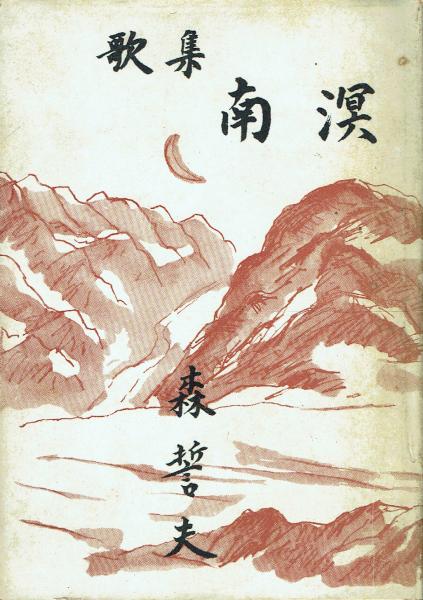 歌集
南溟
森誓夫